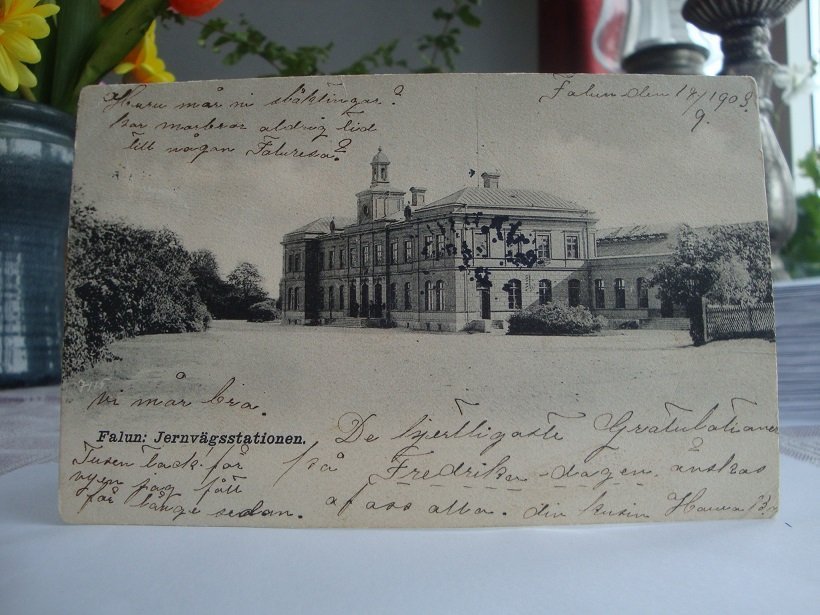 Huru mår ni släktingar?
har morbror aldrig tid
till någon Faluresa?
Falun den 18/9 1903.
vi mår bra.
Falun: Jernvägsstationen.
De hjertligaste Gratulationer
på Fredrika-dagen önskas
af oss alla. din kusin Hanna
Tusen tack för
vyen jag fått
för länge sedan.